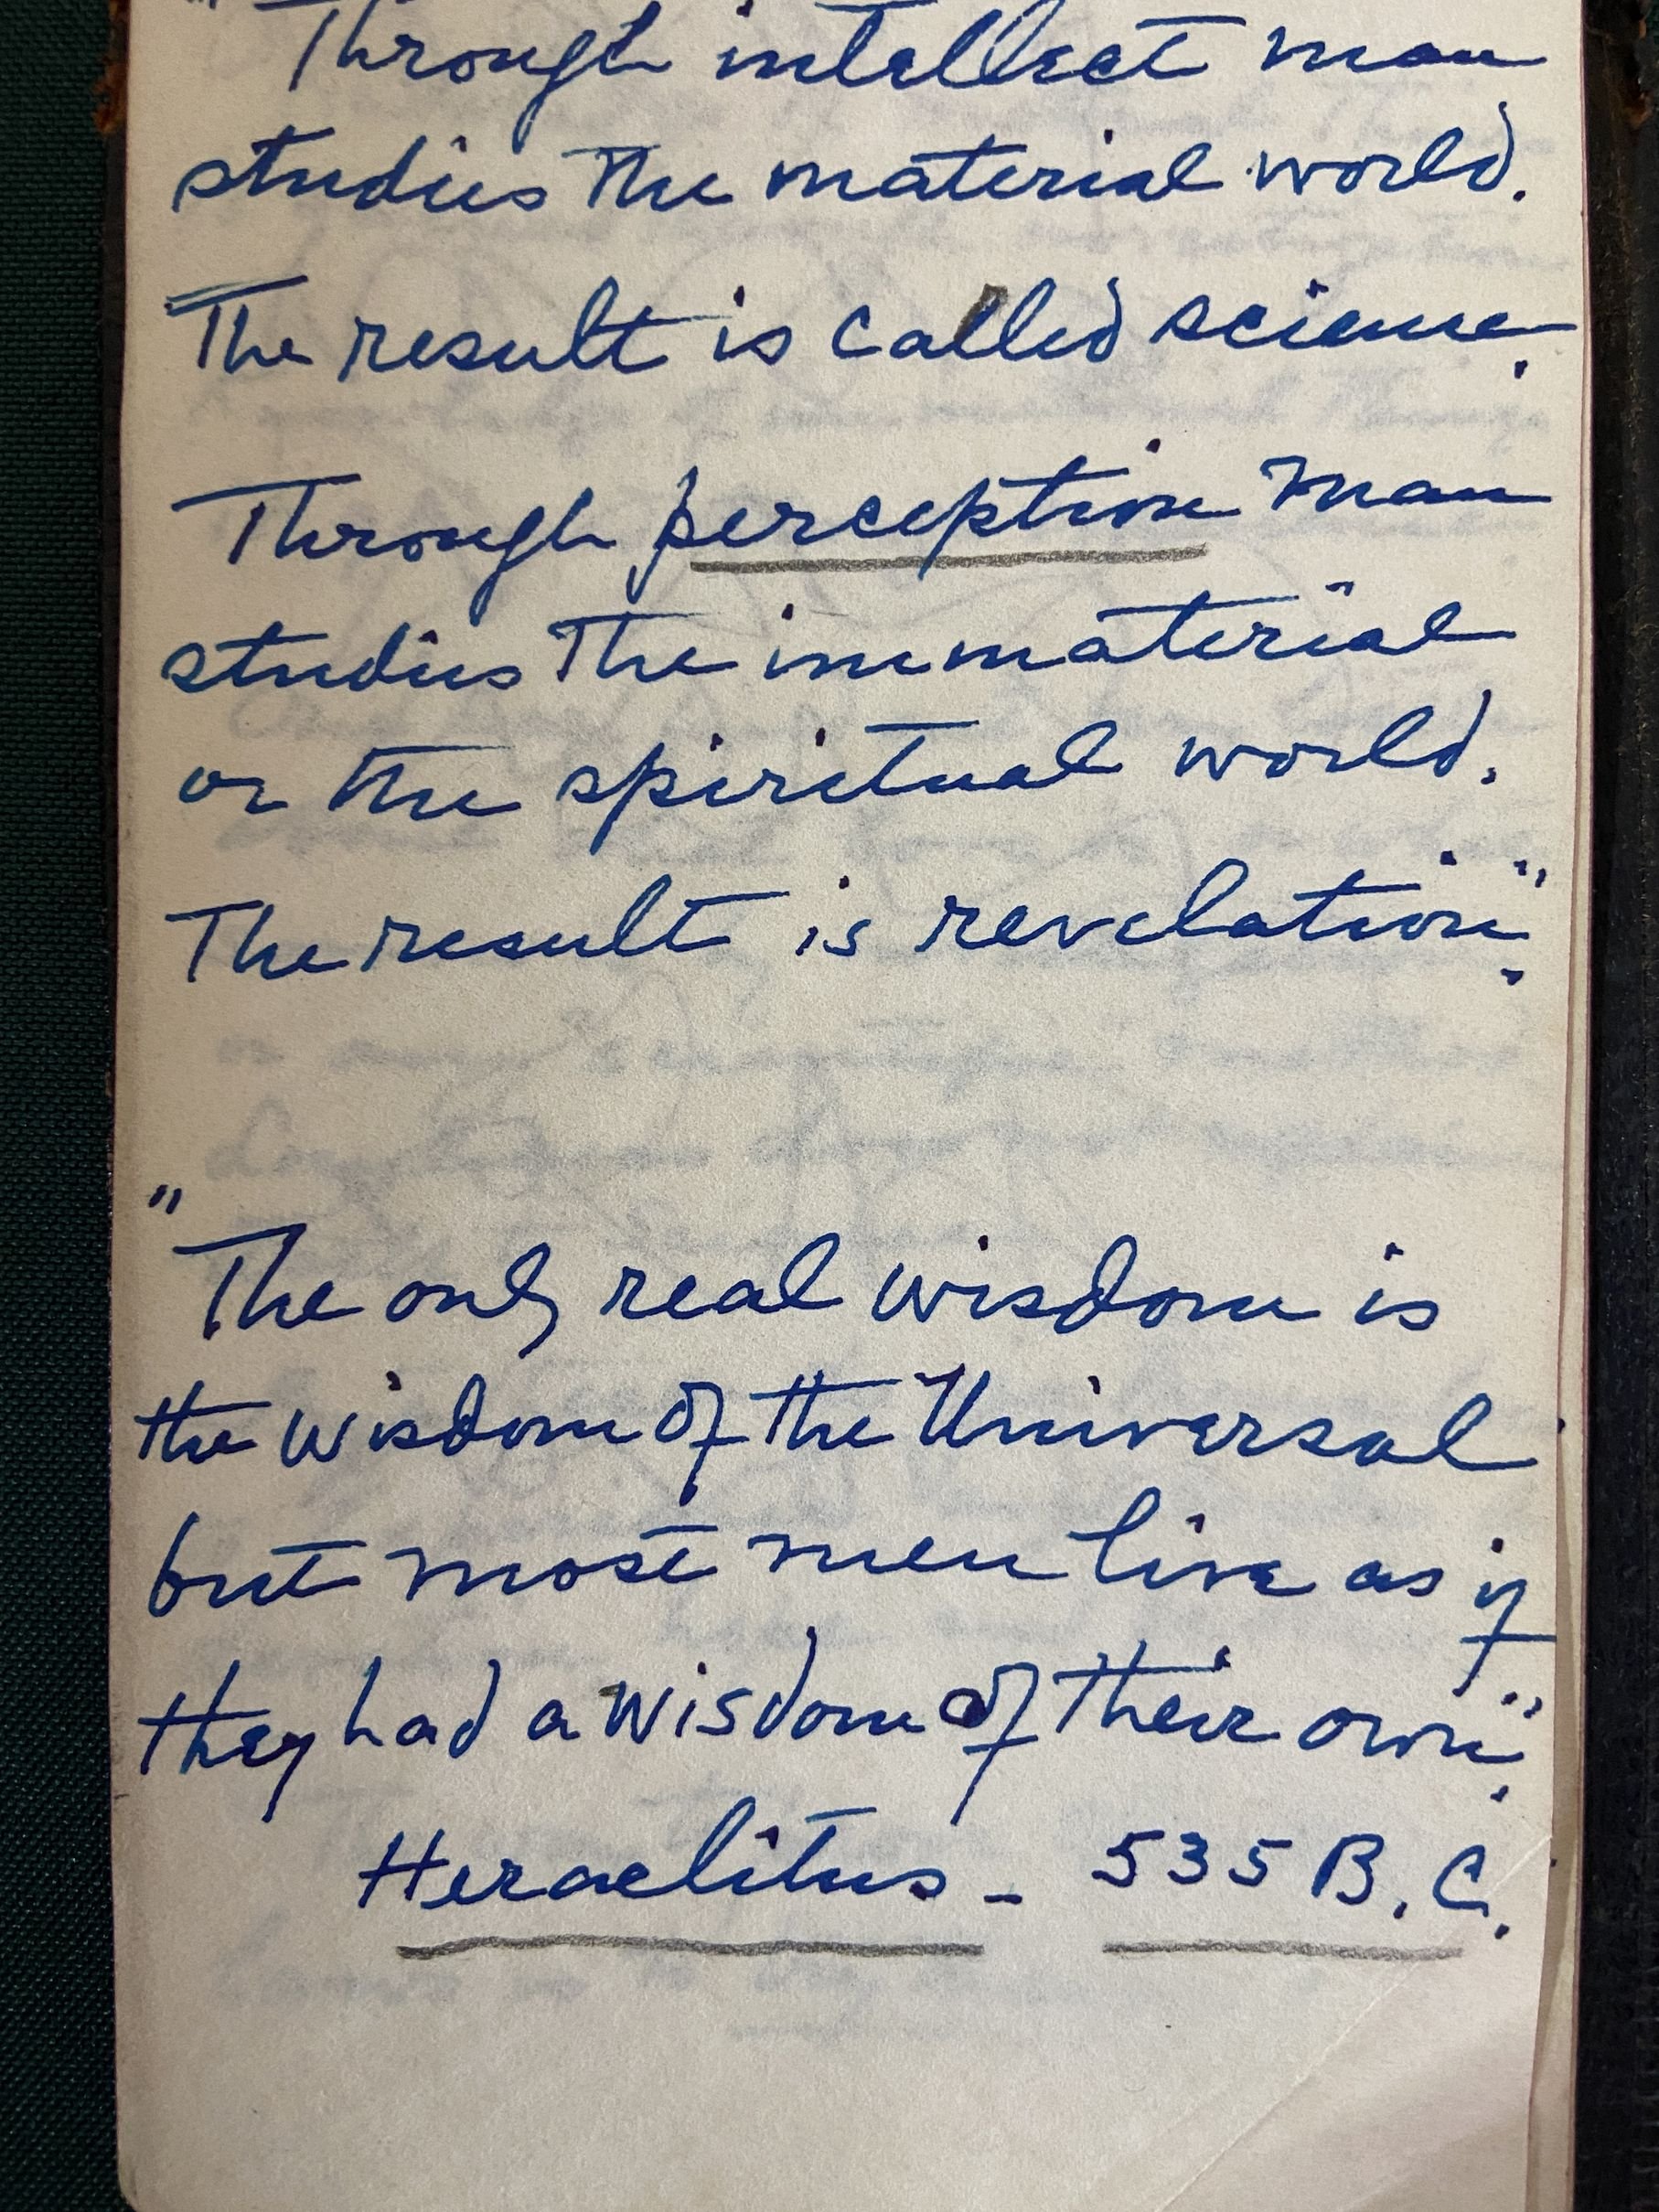 "Through intellect man
studies the material world.
The result is called science.
Through perception man
studies the immaterial
or the spiritual world.
The result is revelation."
"The only real wisdom is
the wisdom of the Universal
but most men live as if
they had a wisdom of their own."
Heraclitus - 535 B.C.